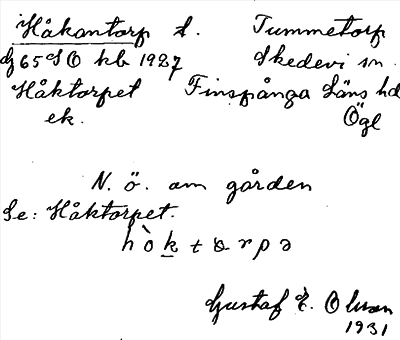 Håkantorp t. Tummetorp
Gj 65 SO kb 1927 Skedevi sn.
Håktorpet Finspånga läns hd
ek. Ögl
N. ö. om gården
Se: Håktorpet.
hòk̲tɷrpə
Gustaf E. Olsson
1931